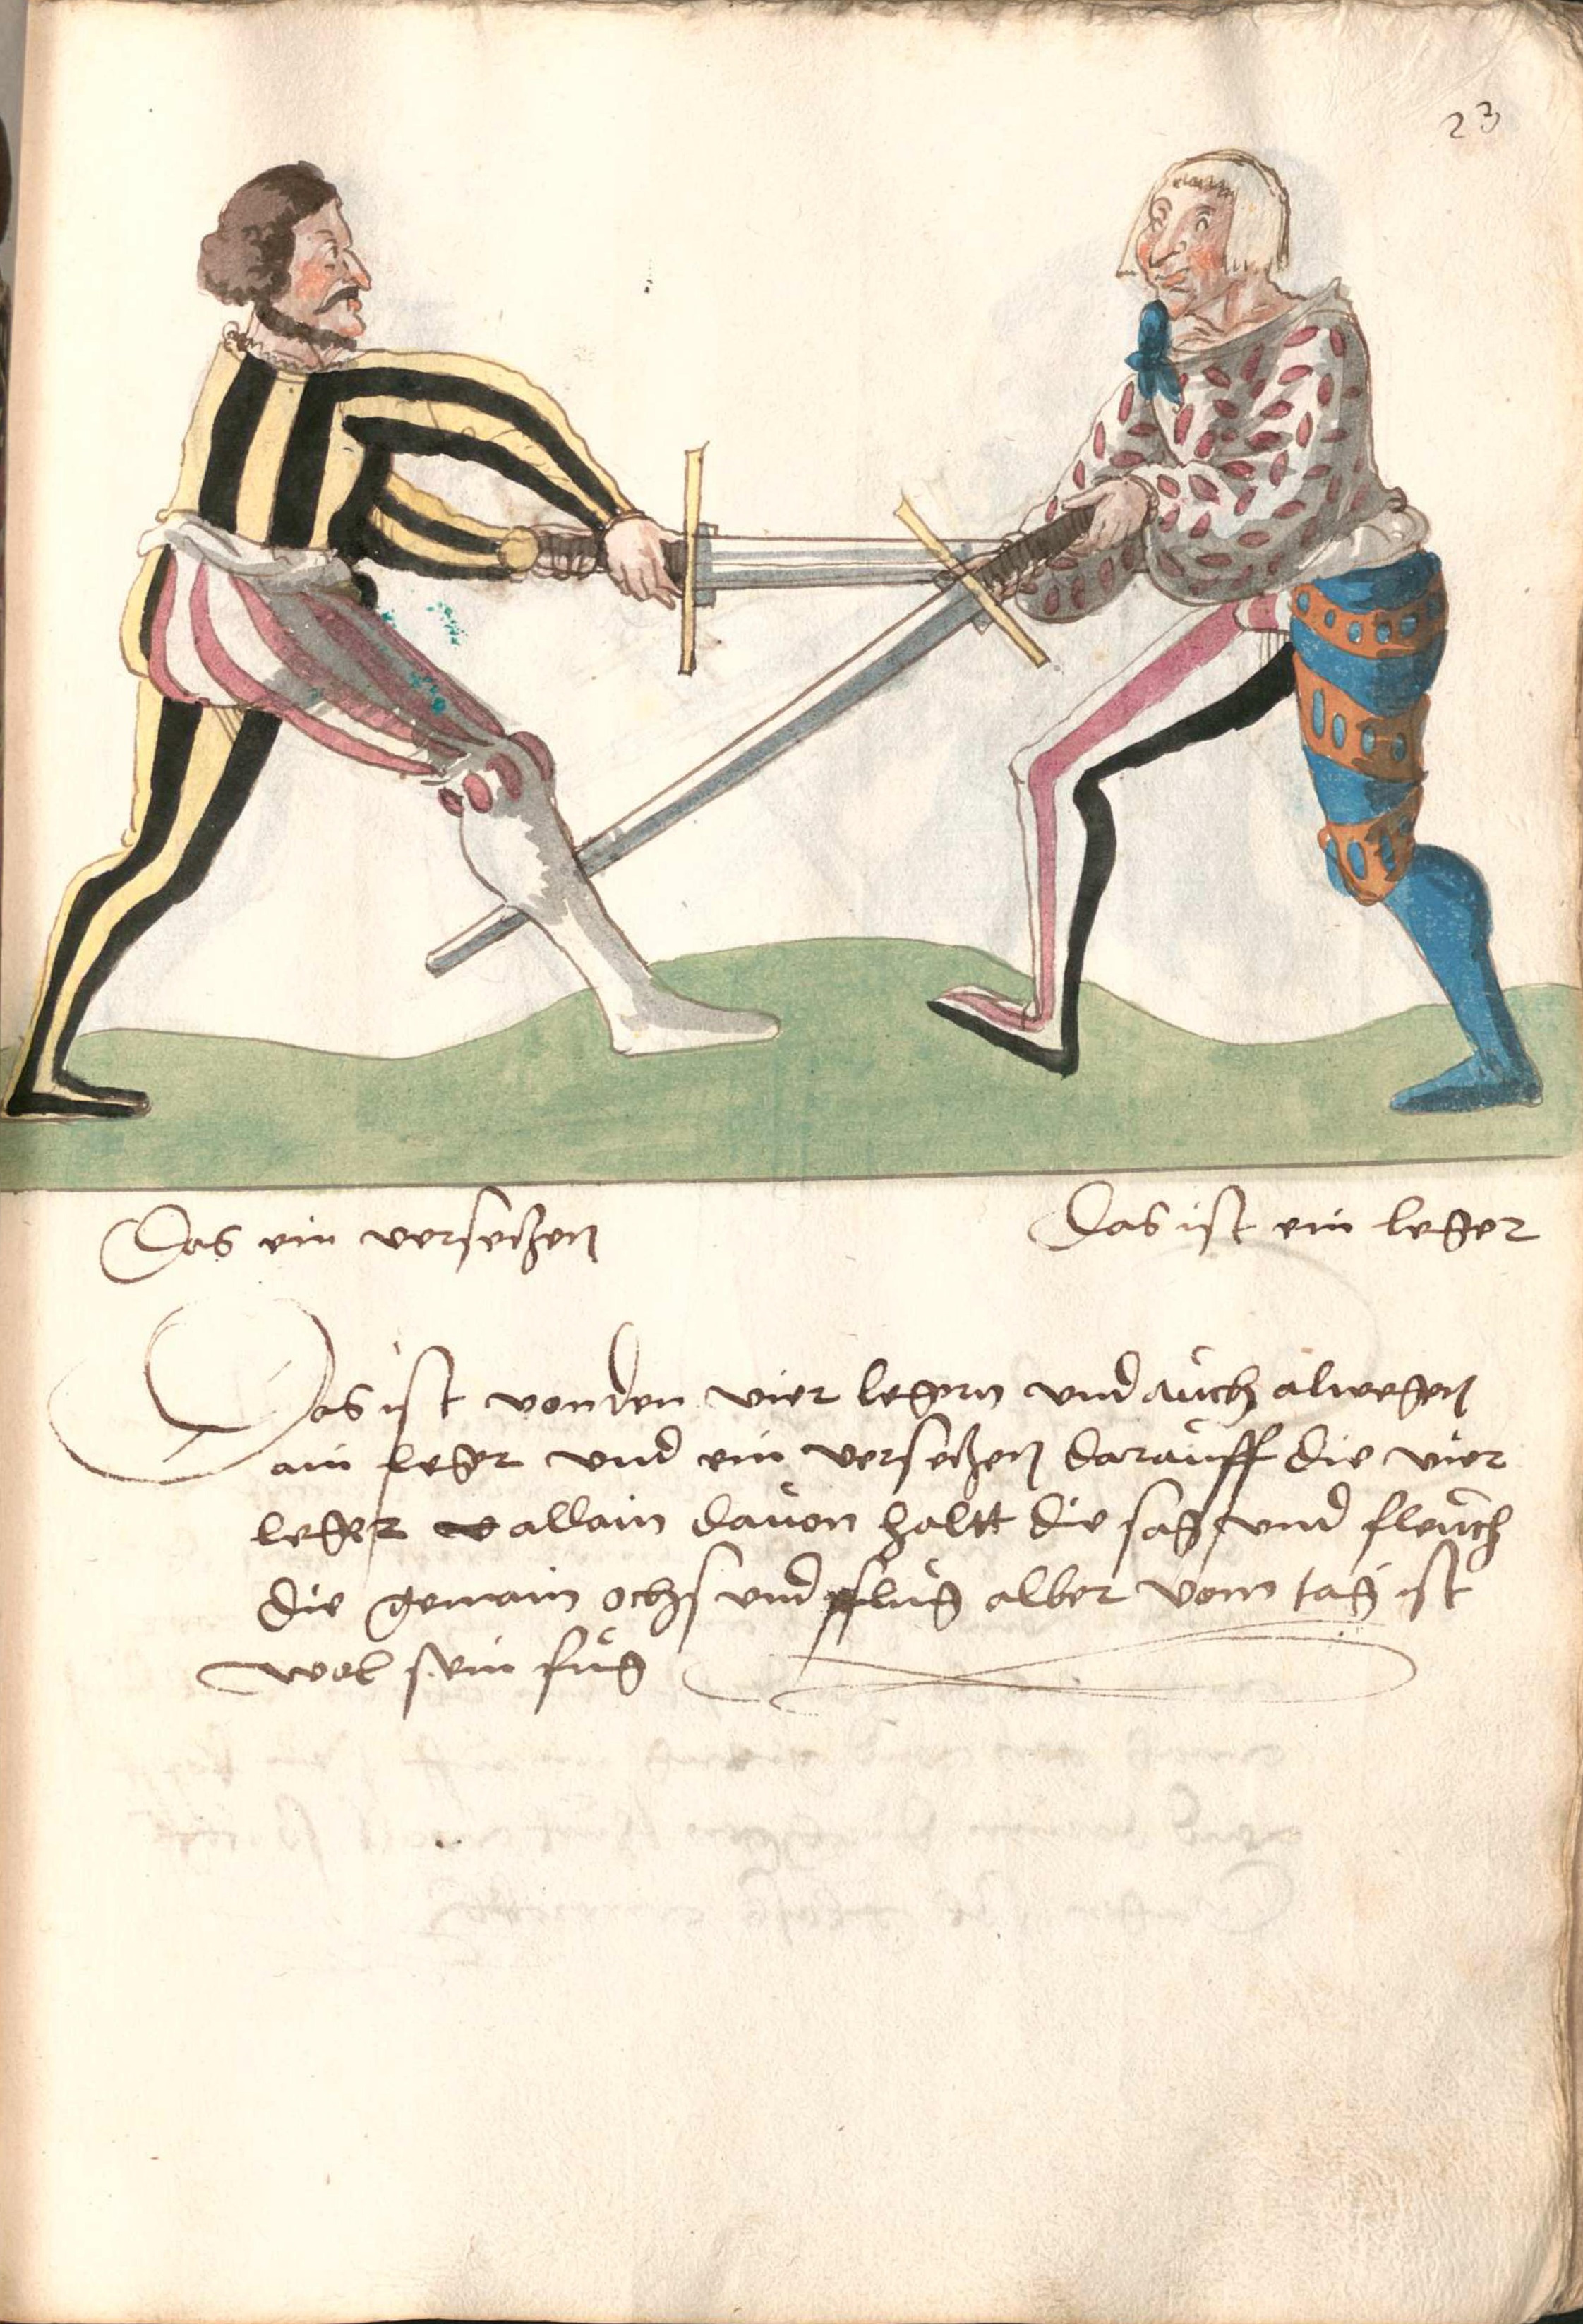 23
Das ein versetzen
Das ist ein leger
Das ist von den vier legern vnd auch alwegen
ain leger vnd ein versetzen darauff die vier
leger allain dauon haltt die sag vnd fleuch
die gemain ochs vnd pflug alber vom tag ist
wol sein fug